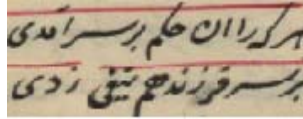 هر که را آن حکم بر سر آمدی
بر سر فرزند هم تیغی زدی